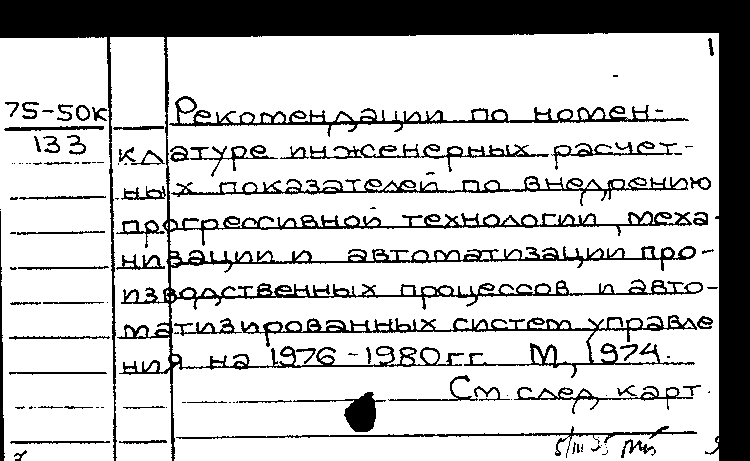 1
75-50к Рекомендации по номен-
133 клатуре инженерных расчет-
ных показателей по внедрению
прогрессивной технологии, меха-
низации и автоматизации про-
изводственных процессов и авто-
матизированных систем управле
ния на 1976-1980гг. М, 1974.
См след. карт.